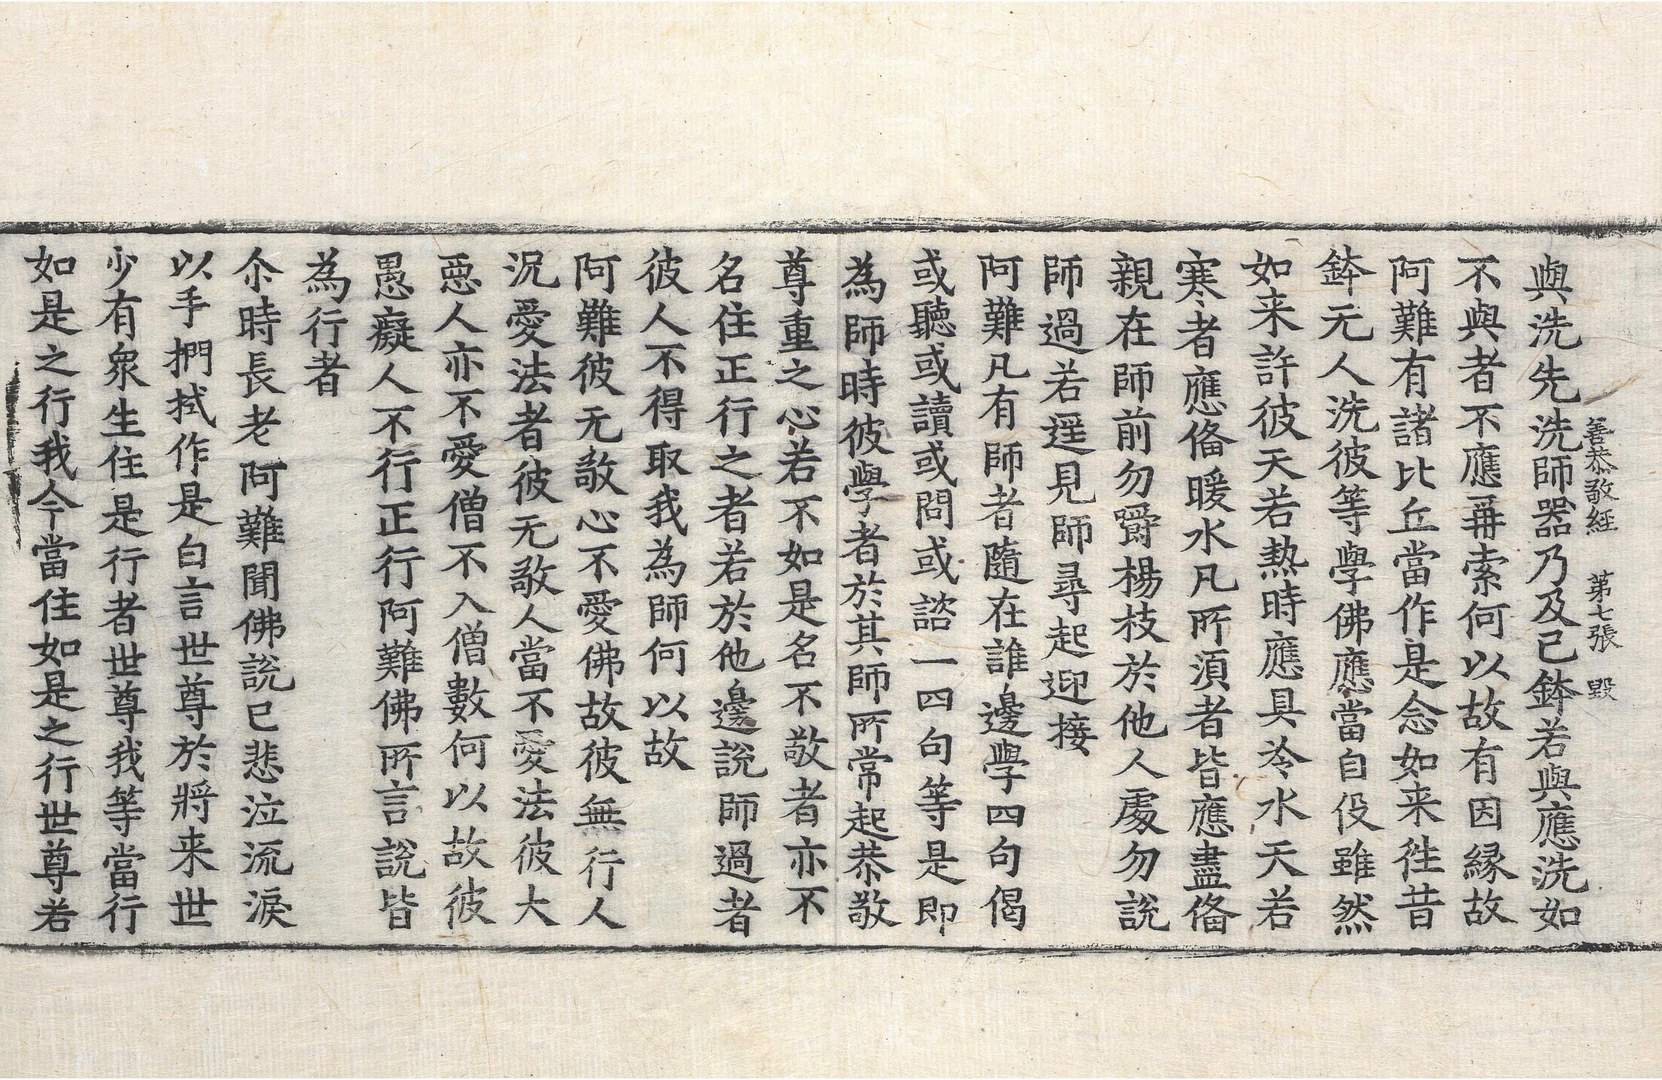 善恭敬經　第七張　毀
與洗先洗師器乃及已鉢若與應洗如
不與者不應再索何以故有因緣故
阿難有諸比丘當作是念如来徃昔
鉢元人洗彼等學佛應當自伇雖然
如来許彼天若熱時應具冷水天若
寒者應俻暖水凡所湏者皆應盡俻
親在師前勿嚼楊枝於他人處勿說
師過若遥見師尋起迎接
阿難凡有師者隨在誰邊學四句偈
或聽或讀或問或諮一四句等是即
為師時彼學者於其師所常起恭敬
尊重之心若不如是名不敬者亦不
名住正行之者若於他邊說師過者
彼人不得取我為師何以故
阿難彼无敬心不愛佛故彼無行人
況愛法者彼无敬人當不愛法彼大
惡人亦不愛僧不入僧數何以故彼
愚癡人不行正行阿難佛所言說皆
為行者
尒時長老阿難聞佛說已悲泣流淚
以手捫拭作是白言世尊於將来世
少有衆生住是行者世尊我等當行
如是之行我今當住如是之行世尊若